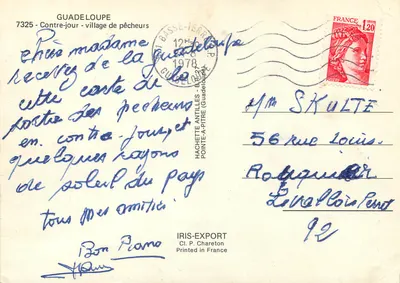 GUADELOUPE
7325 - Contre-jour - village de pêcheurs
Chère madame
recevez de la guadeloupe
cette carte de la
sortie des pêcheurs
en contre-jour, et
quelques rayons
de soleil du pays
tous mes amitiés
Bon
HACHETTE ANTILLES
POINTE-A-PITRE (Guadeloupe)
IRIS-EXPORT
Cl. P. Chareton
Printed in France
BASSE-TERRE R.P.
1978
GUADELOUPE
FRANCE
1,20
SKULTE
56 rue Louis
Rouquier
Levallois Perret
92